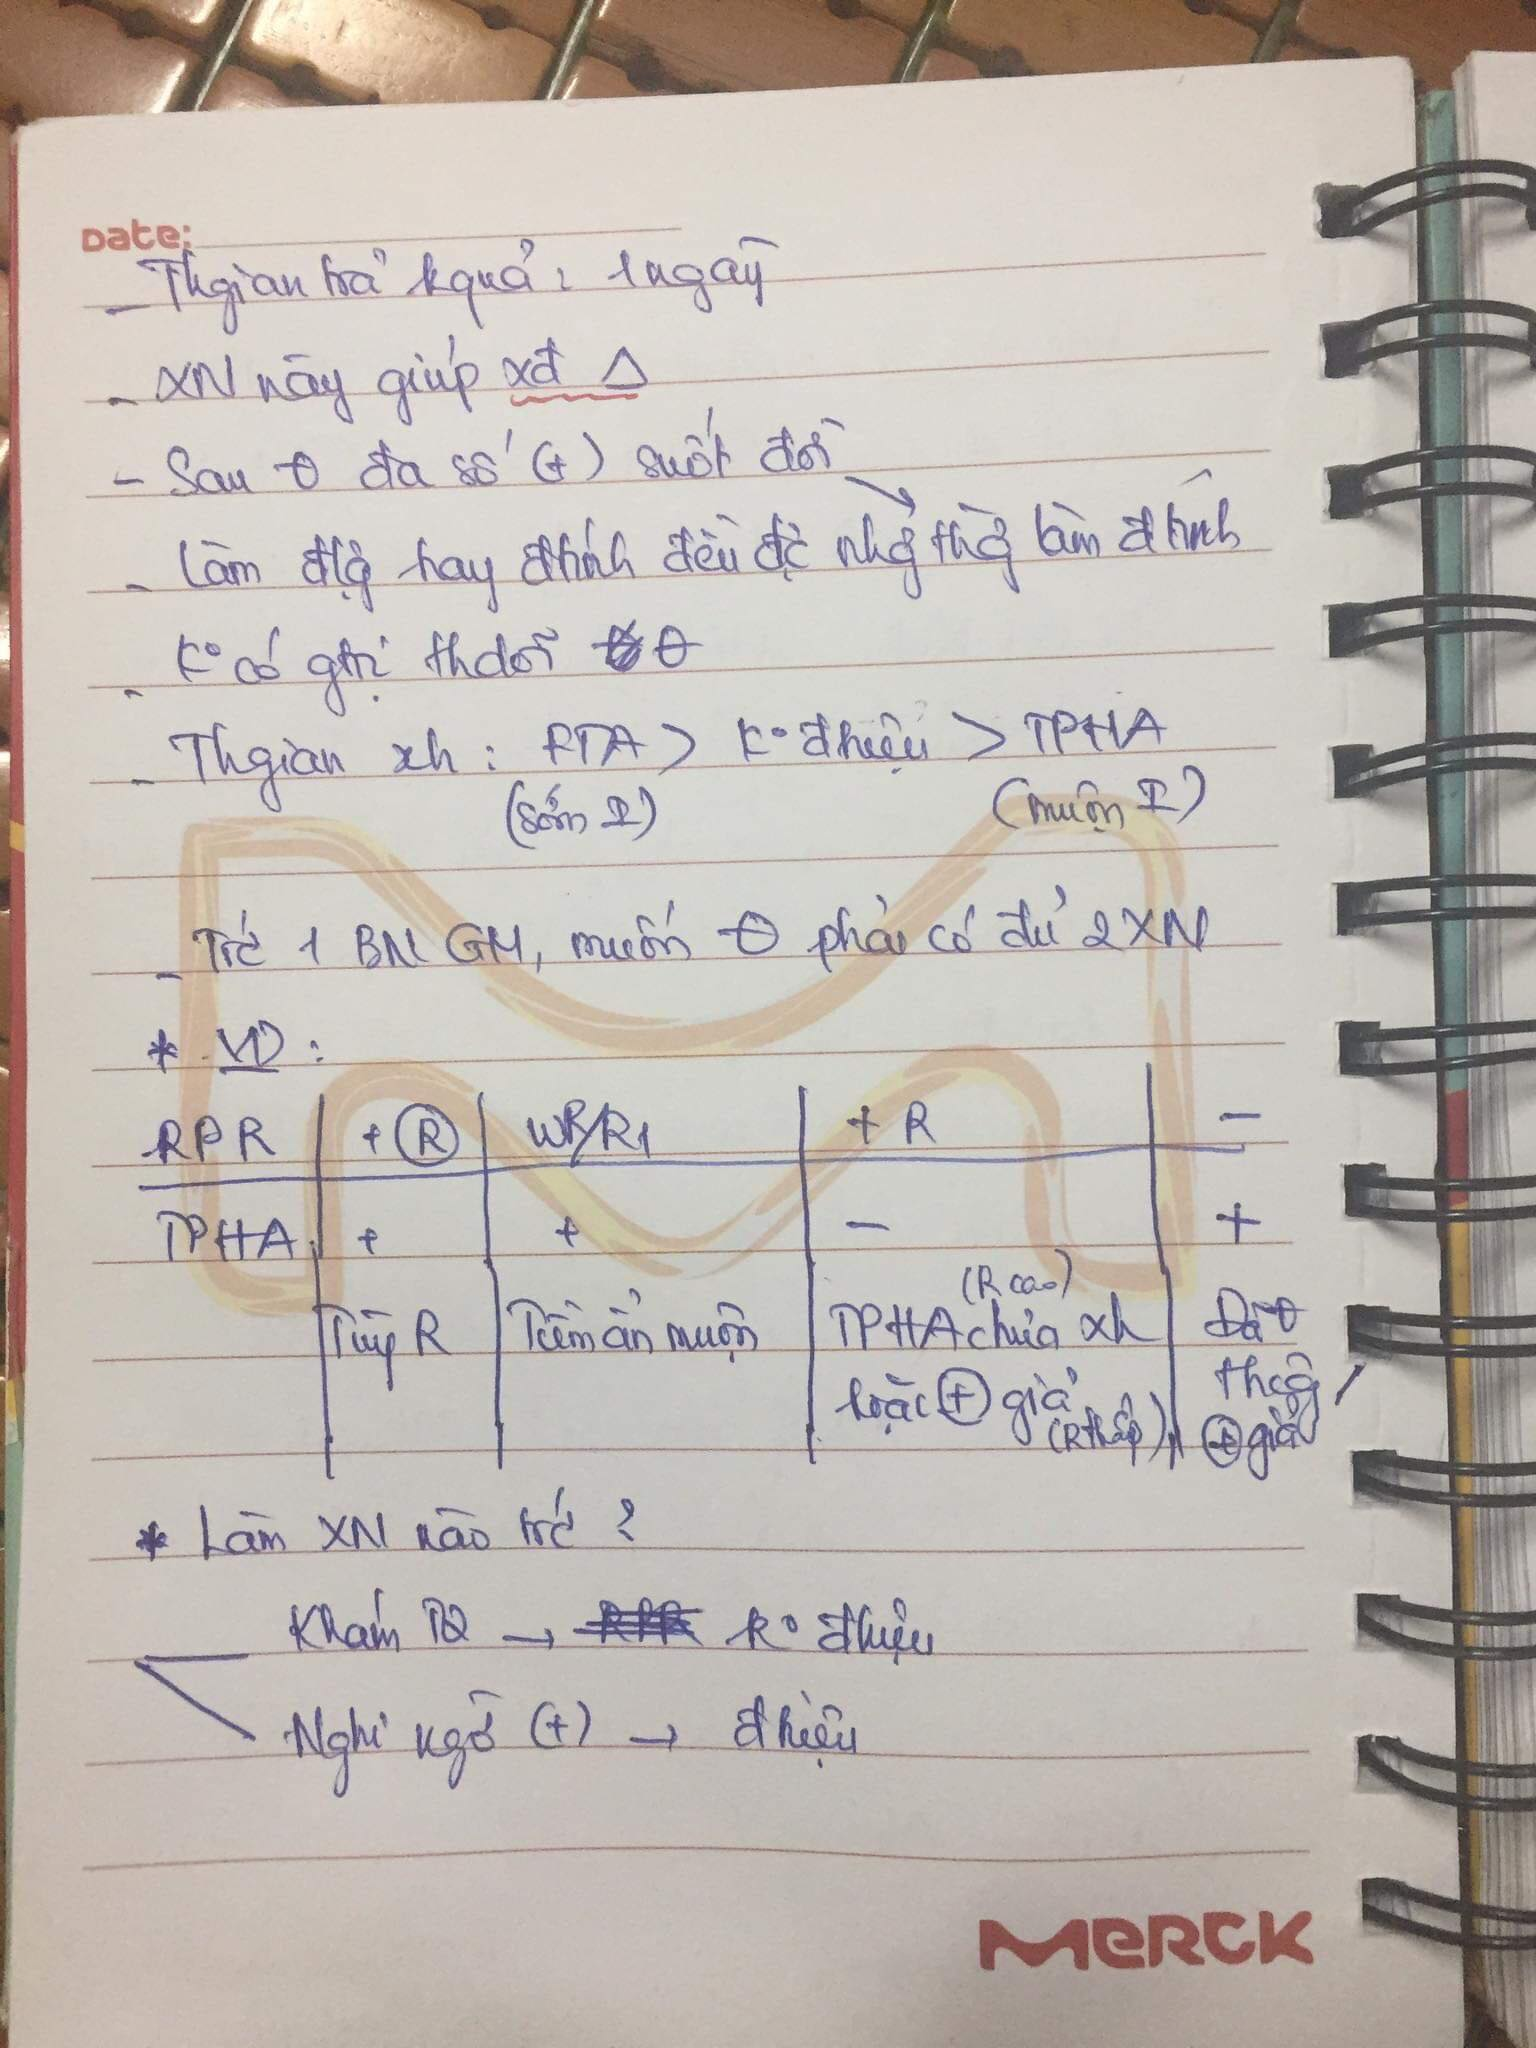 Date:
- Thgian trả kquả: 1 ngày
- XN này giúp xđ Δ
- Sau θ đa số (+) suốt đời
- Làm đlg hay đtính đều đc nhg thg làm đtính
- K° có gtrị thdõi θ
- Thgian xh: FTA > K° đhiệu > TPHA
(sớm I) (muộn I)
- Trc 1 BN GM, muốn θ phải có đủ 2 XN
* VD:
RPR | + Ⓡ | WR/R1 | + R | -
TPHA | + | + | - | +
Tùy R | Tiềm ẩn muộn | TPHA chưa xh (R cao) | Đã θ
hoặc ⊕ giả (R thấp) | thcg /
⊕ giả
* Làm XN nào trc?
Khám TQ → K° đhiệu
Nghi ngờ (+) → đhiệu
MERCK